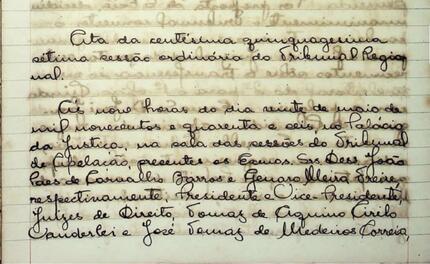 Ata da centésima quinquagesima
sétima sessão ordinária do Tribunal Regio
nal.
Ás nove horas do dia vinte de maio de
mil novecentos e quarenta e seis, no Palácio
da Justiça, na sala das sessões do Tribunal
de Apelação presentes os Exmos. Srs. Dess. João
Paes de Carvalho Barros e Genaro Freire,
respectivamente, Presidente e Vice-Presidente,
Juizes de Direito, Tomaz de Aquino Cirilo
Vanderlei e José Tomaz de Medeiros Correia,